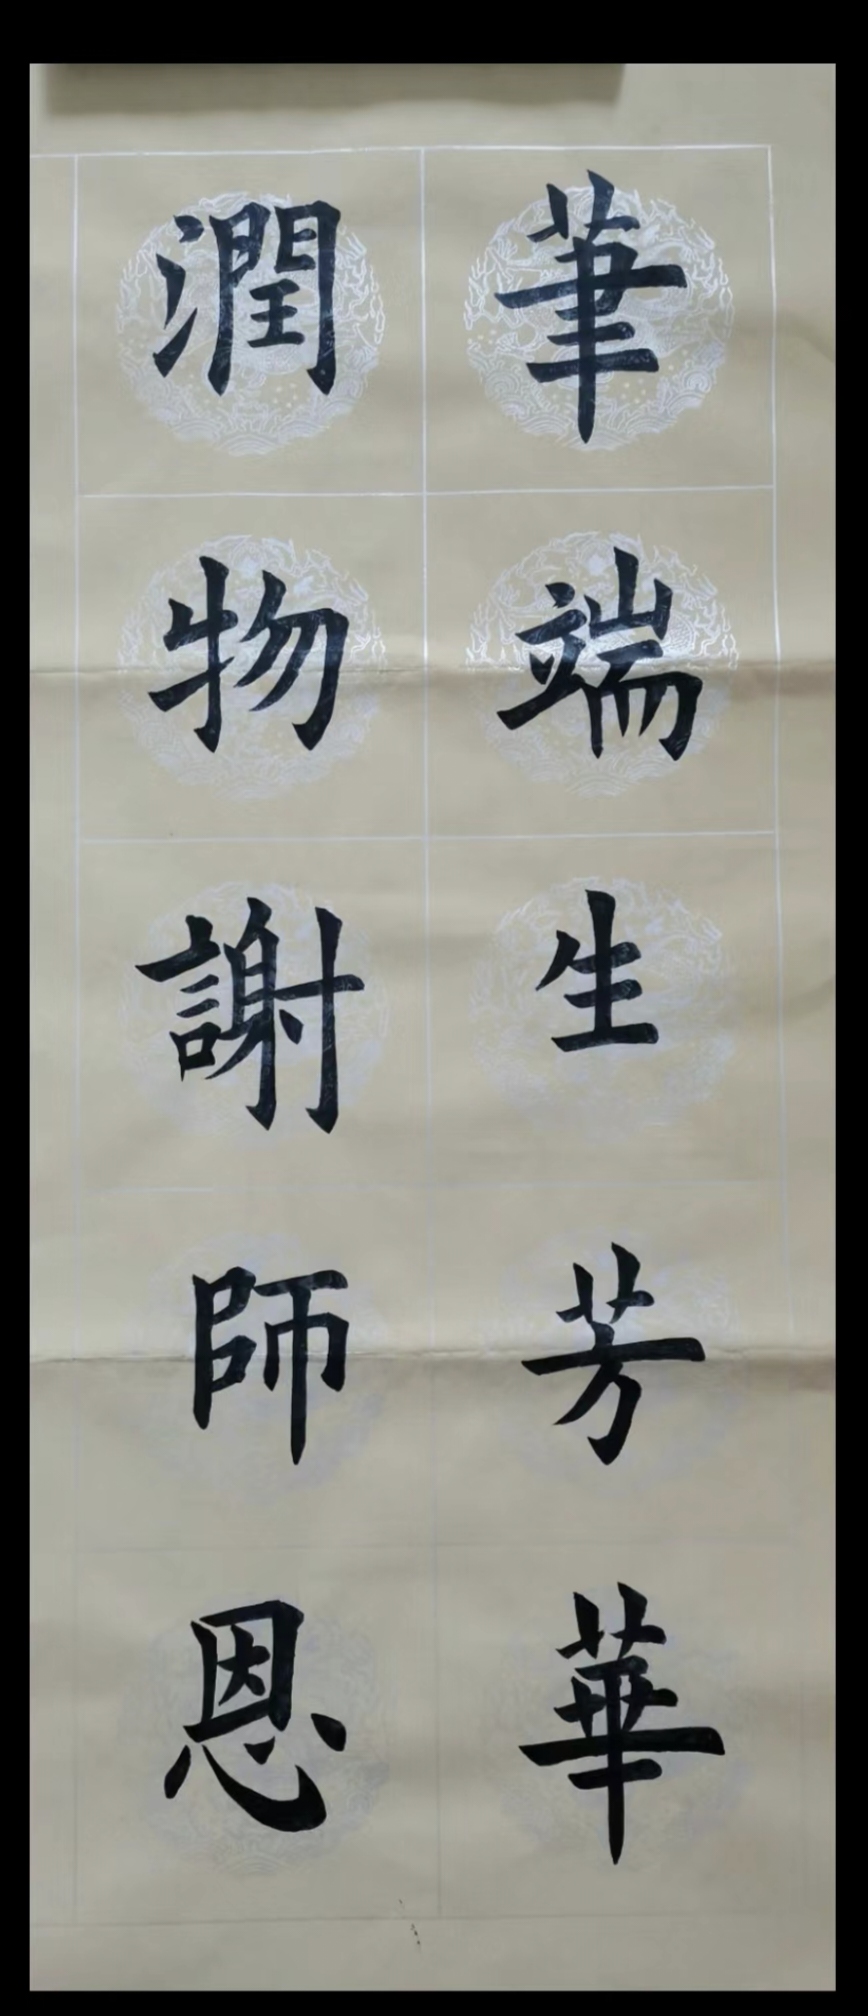 筆端生芳華
潤物謝師恩